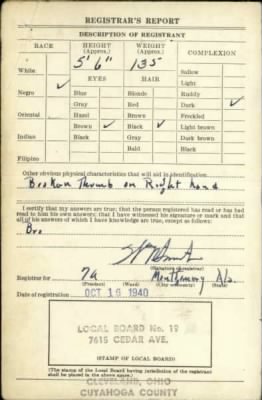 REGISTRAR'S REPORT
DESCRIPTION OF REGISTRANT
RACE HEIGHT (Approx.) WEIGHT (Approx.) COMPLEXION
5' 6" 135
White Sallow
EYES HAIR Light
Negro Blue Blonde Ruddy
Gray Red Dark ✓
Oriental Hazel Brown Freckled
Brown ✓ Black ✓ Light brown
Indian Black Gray Dark brown
Bald Black
Filipino
Other obvious physical characteristics that will aid in identification
Broken Thumb on Right hand
I certify that my answers are true; that the person registered has read or has had
read to him his own answers; that I have witnessed his signature or mark and that
all of his answers of which I have knowledge are true, except as follows:
(Signature of registrar)
Registrar for 7A Montgomery Ala.
(Precinct) (Ward) (City or county) (State)
Date of registration OCT 16 1940
LOCAL BOARD No. 19
7615 CEDAR AVE.
(STAMP OF LOCAL BOARD)
(The stamp of the Local Board having jurisdiction of the registrant
shall be placed in the above space.)
CLEVELAND, OHIO
CUYAHOGA COUNTY